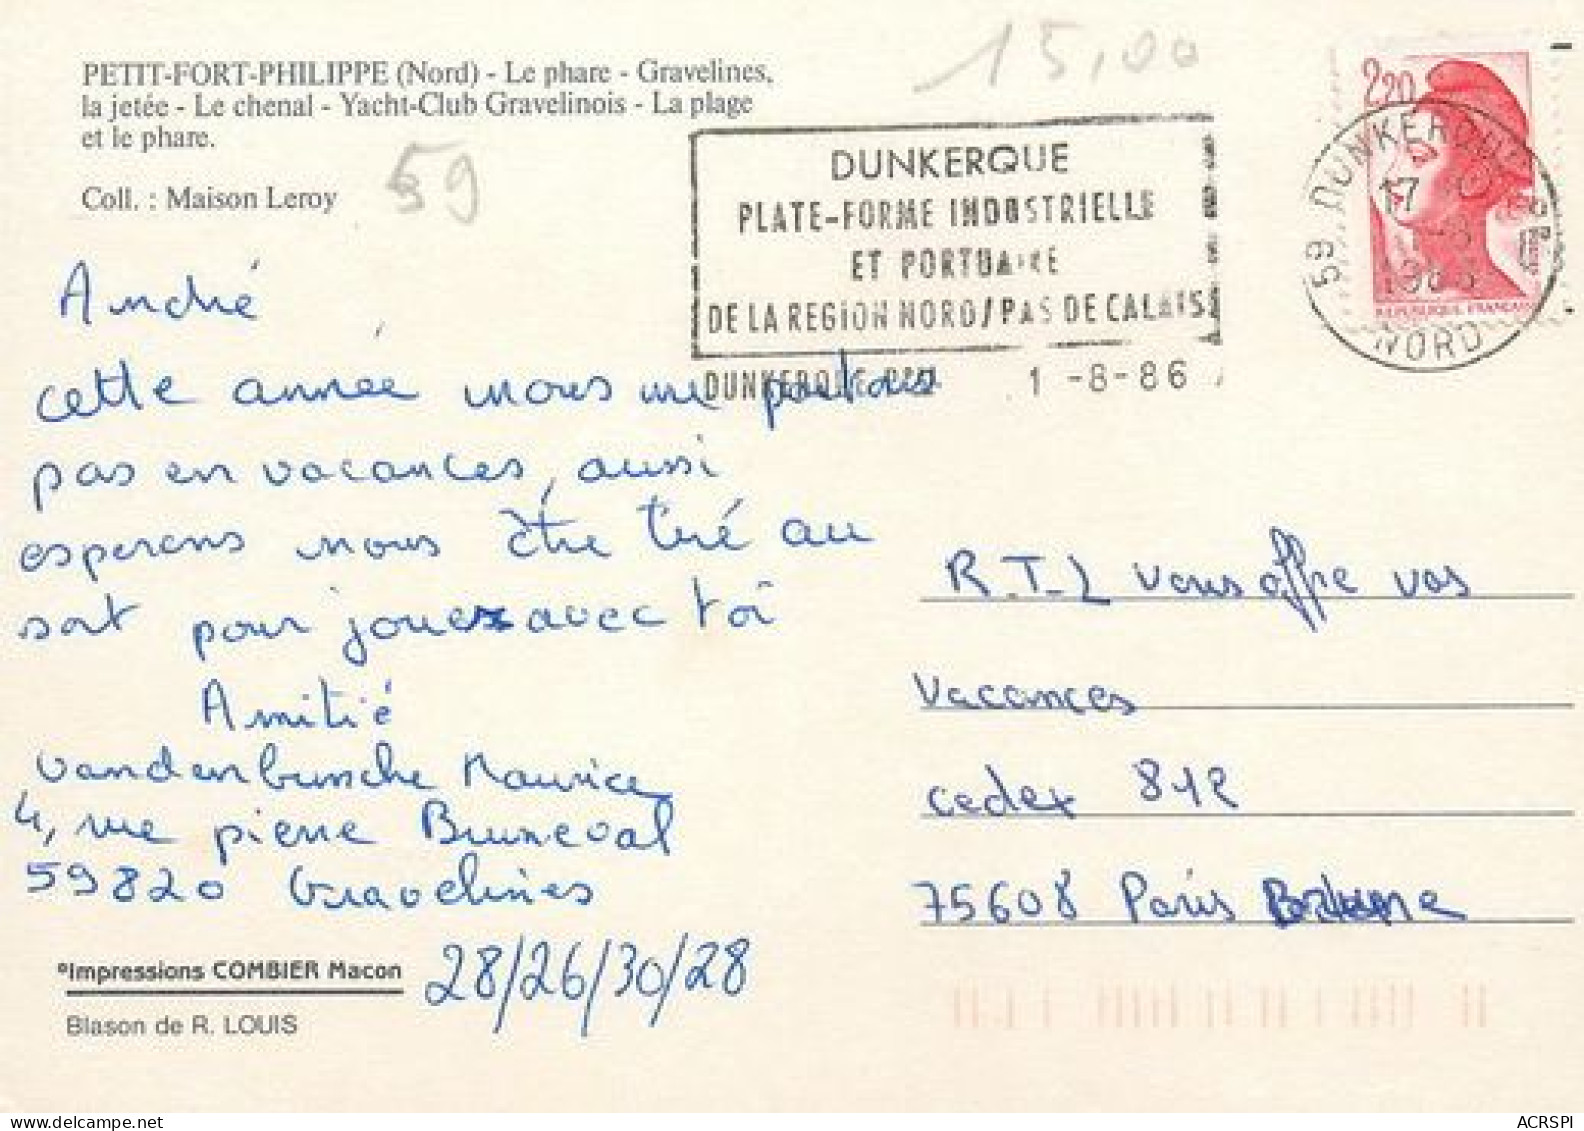 PETIT-FORT-PHILIPPE (Nord) - Le phare - Gravelines,
la jetée - Le chenal - Yacht-Club Gravelinois - La plage
et le phare.
Coll. : Maison Leroy
59
15,00
DUNKERQUE
PLATE-FORME INDUSTRIELLE
ET PORTUAIRE
DE LA REGION NORD/PAS DE CALAIS
DUNKERQUE 1-8-86
2,20
REPUBLIQUE FRANÇAISE
59 DUNKERQUE
17 H
1-8
1986
NORD
André
cette année nous ne partons
pas en vacances, aussi
esperons nous être tiré au
sort pour jouer avec toi
Amitié
Vandenbussche Maurice
4, rue pierre Bruneval
59820 Gravelines
28/26/30/28
R.T.L vous offre vos
Vacances
cedex 812
75608 Paris
°Impressions COMBIER Macon
Blason de R. LOUIS
ACRSPI